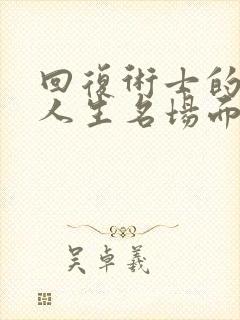 回復術士的
人生名場面
吴卓羲